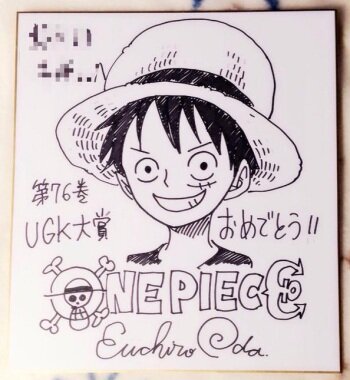 第76巻
UGK大賞
おめでとう!!
ONE PIECE
Eiichiro Oda.